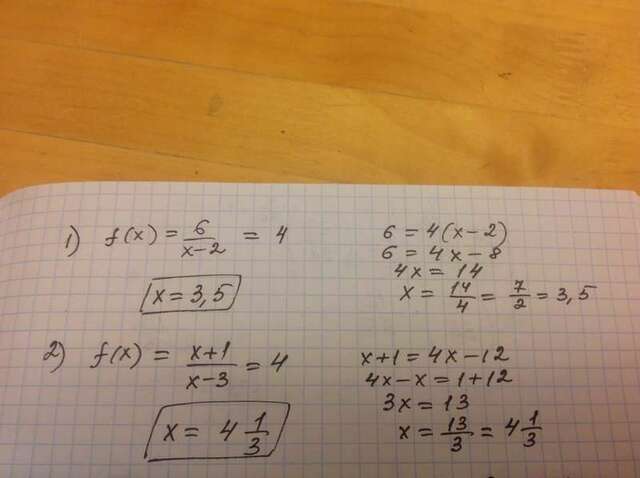 1) f(x) = 6/(x-2) = 4
6 = 4(x-2)
6 = 4x-8
4x = 14
x = 3,5
x = 14/4 = 7/2 = 3,5
2) f(x) = (x+1)/(x-3) = 4
x+1 = 4x-12
4x-x = 1+12
3x = 13
x = 4 1/3
x = 13/3 = 4 1/3